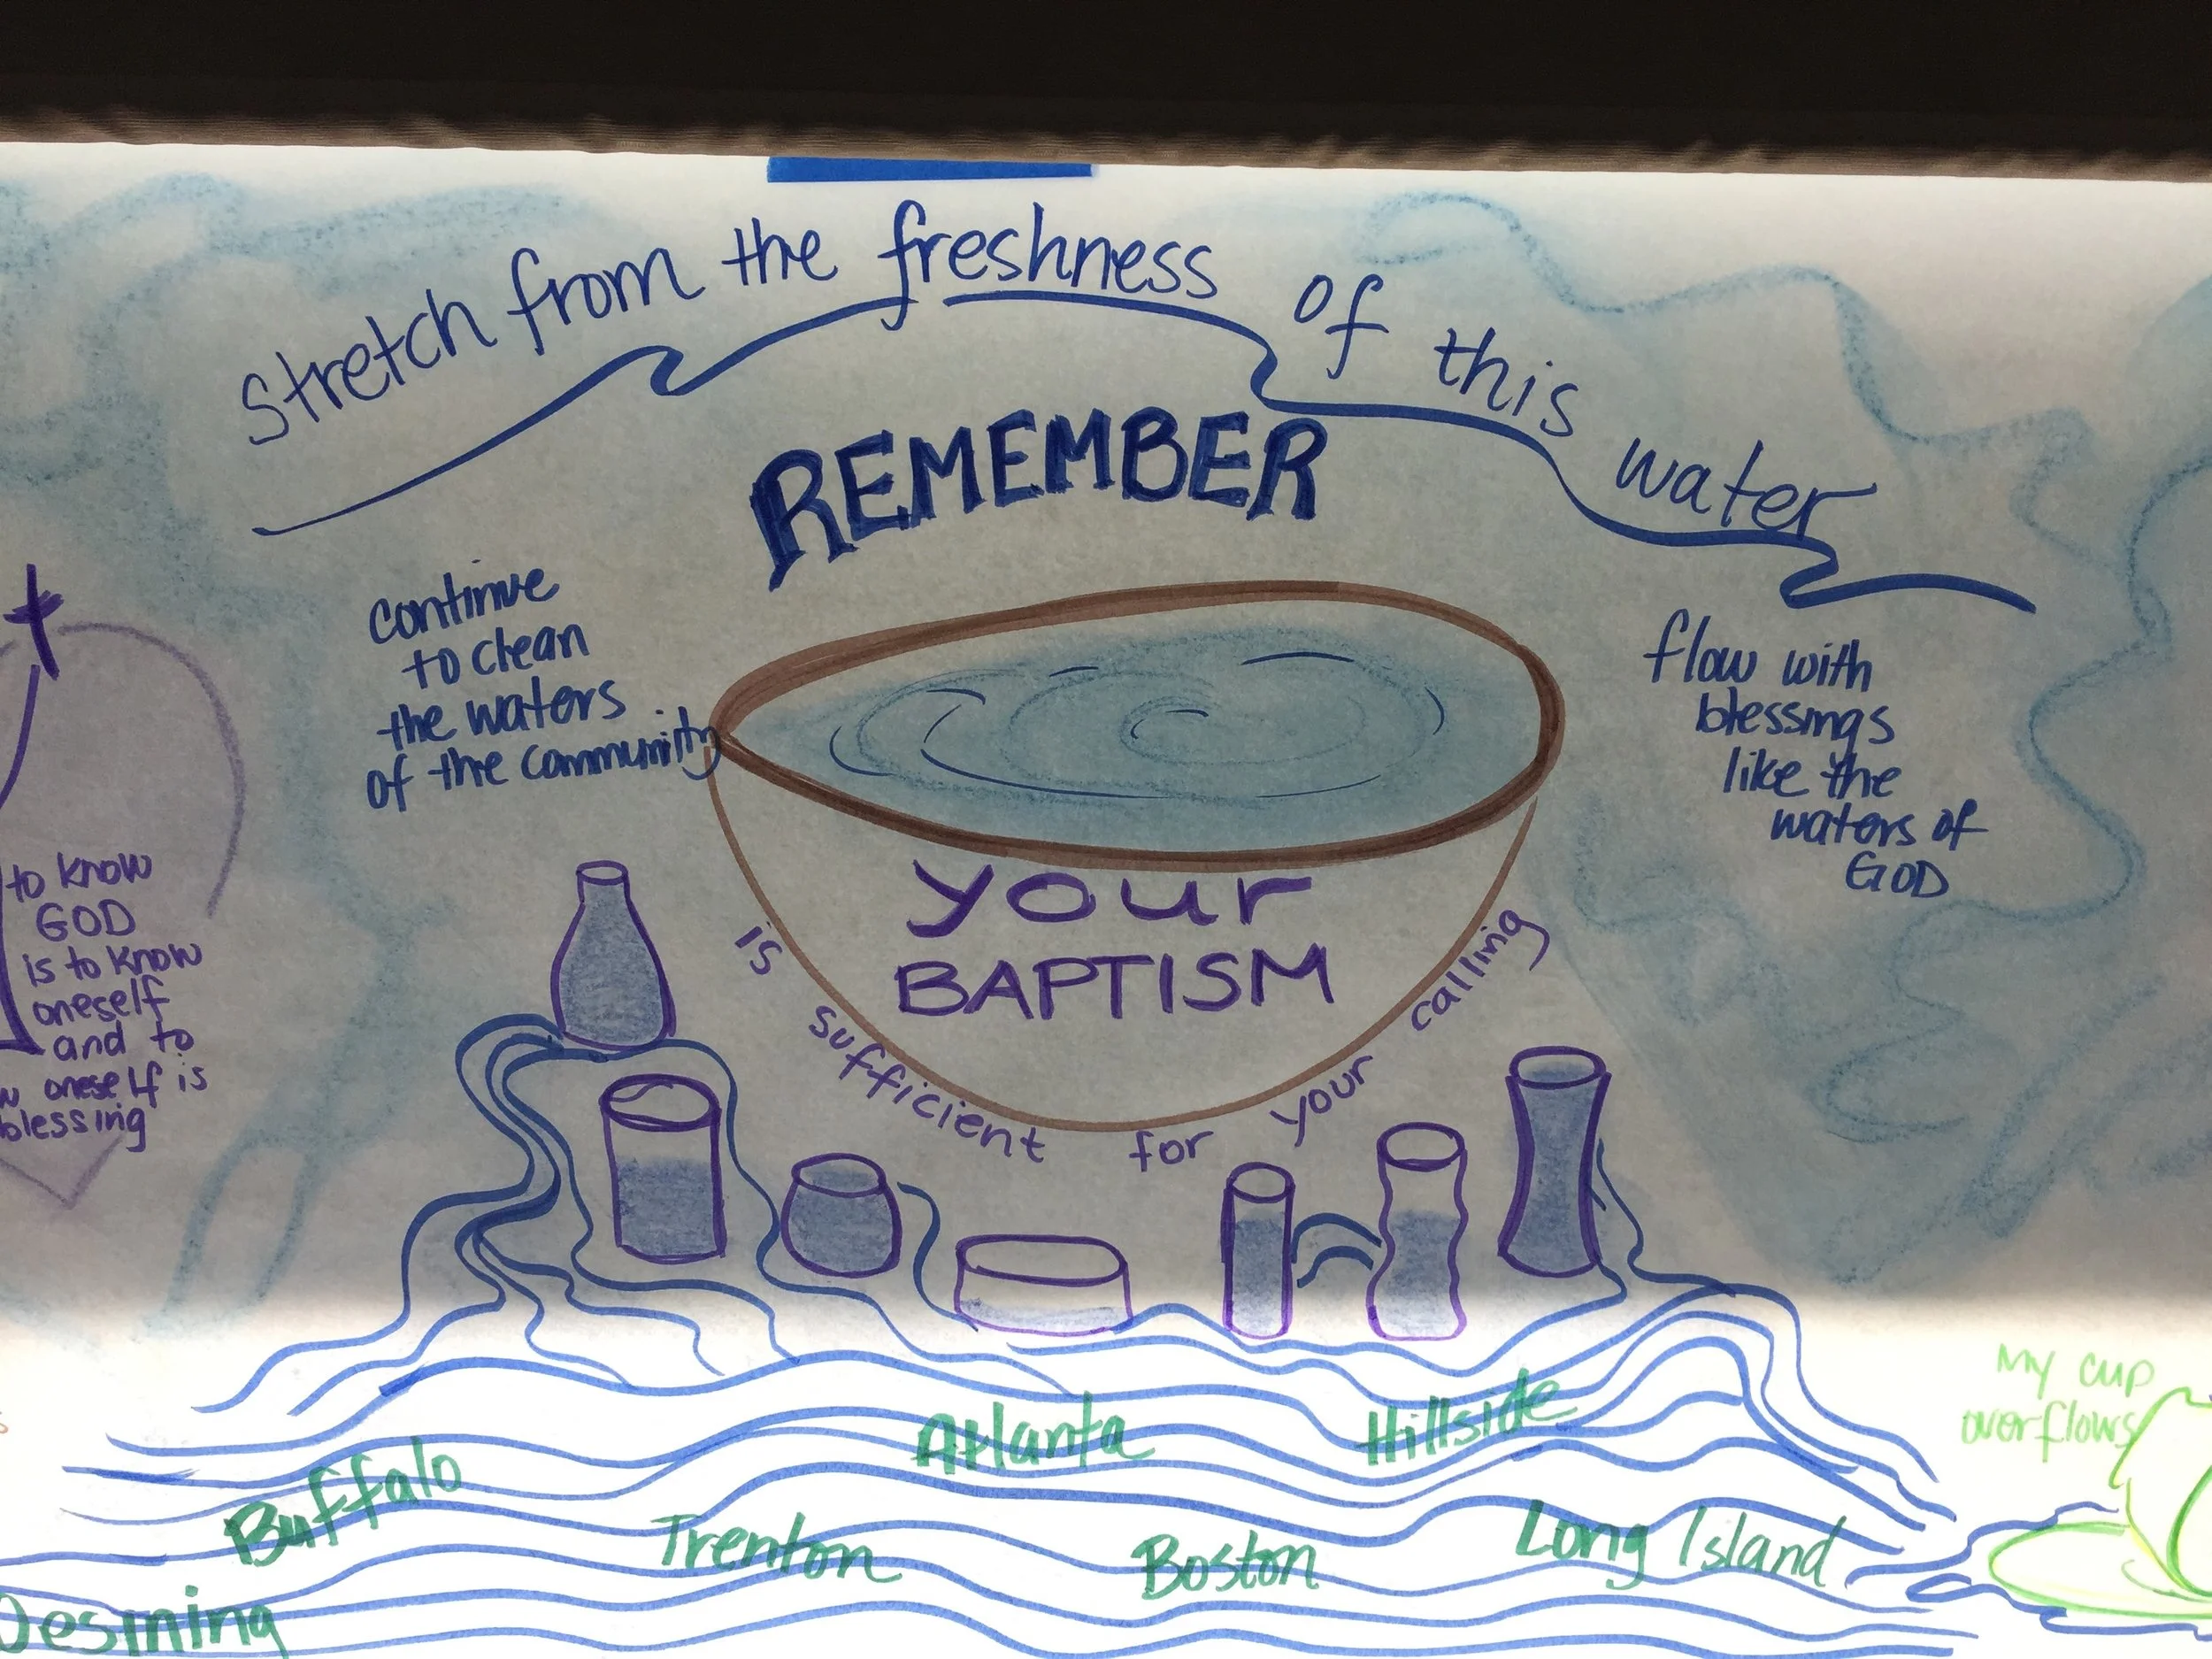 Stretch from the freshness of this water
REMEMBER
continue
to clean
the waters
of the community
flow with
blessings
like the
waters of
GOD
your
BAPTISM
is sufficient for your calling
to know
GOD
is to know
oneself
and to
oneself is
blessing
My cup
overflows
Atlanta
Hillside
Buffalo
Trenton
Boston
Long Island